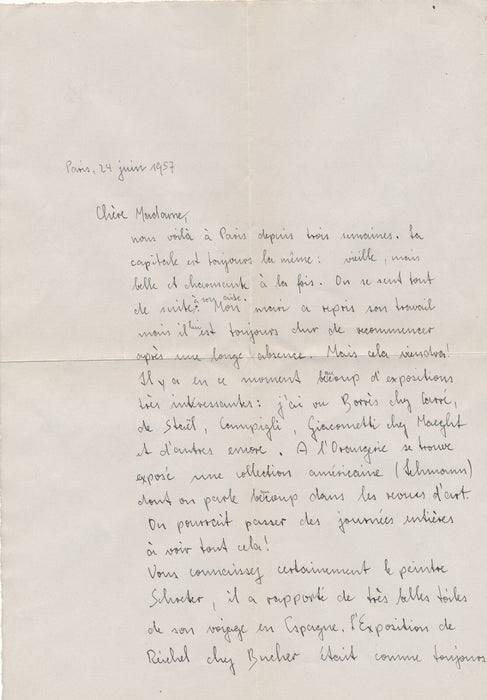 Paris, 24 juin 1957
Chère Madame,
nous voilà à Paris depuis trois semaines. La
capitale est toujours la même : vieille, mais
belle et charmante à la fois. On se sent tout
de suite à son aise. Mon mari a repris son travail
mais il lui est toujours dur de recommencer
après une longe absence. Mais cela viendra!
Il y a en ce moment beaucoup d'expositions
très intéressantes : j'ai vu Borrès chez Carré,
de Staël, Campigli, Giacometti chez Maeght
et d'autres encore. A l'Orangerie se trouve
exposé une collection américaine (Lehmann)
dont on parle beaucoup dans les revues d'art.
On pourrait passer des journées entières
à voir tout cela!
Vous connaissez certainement le peintre
Schreter, il a rapporté de très belles toiles
de son voyage en Espagne. l'Exposition de
Reichel chez Bucher était comme toujours